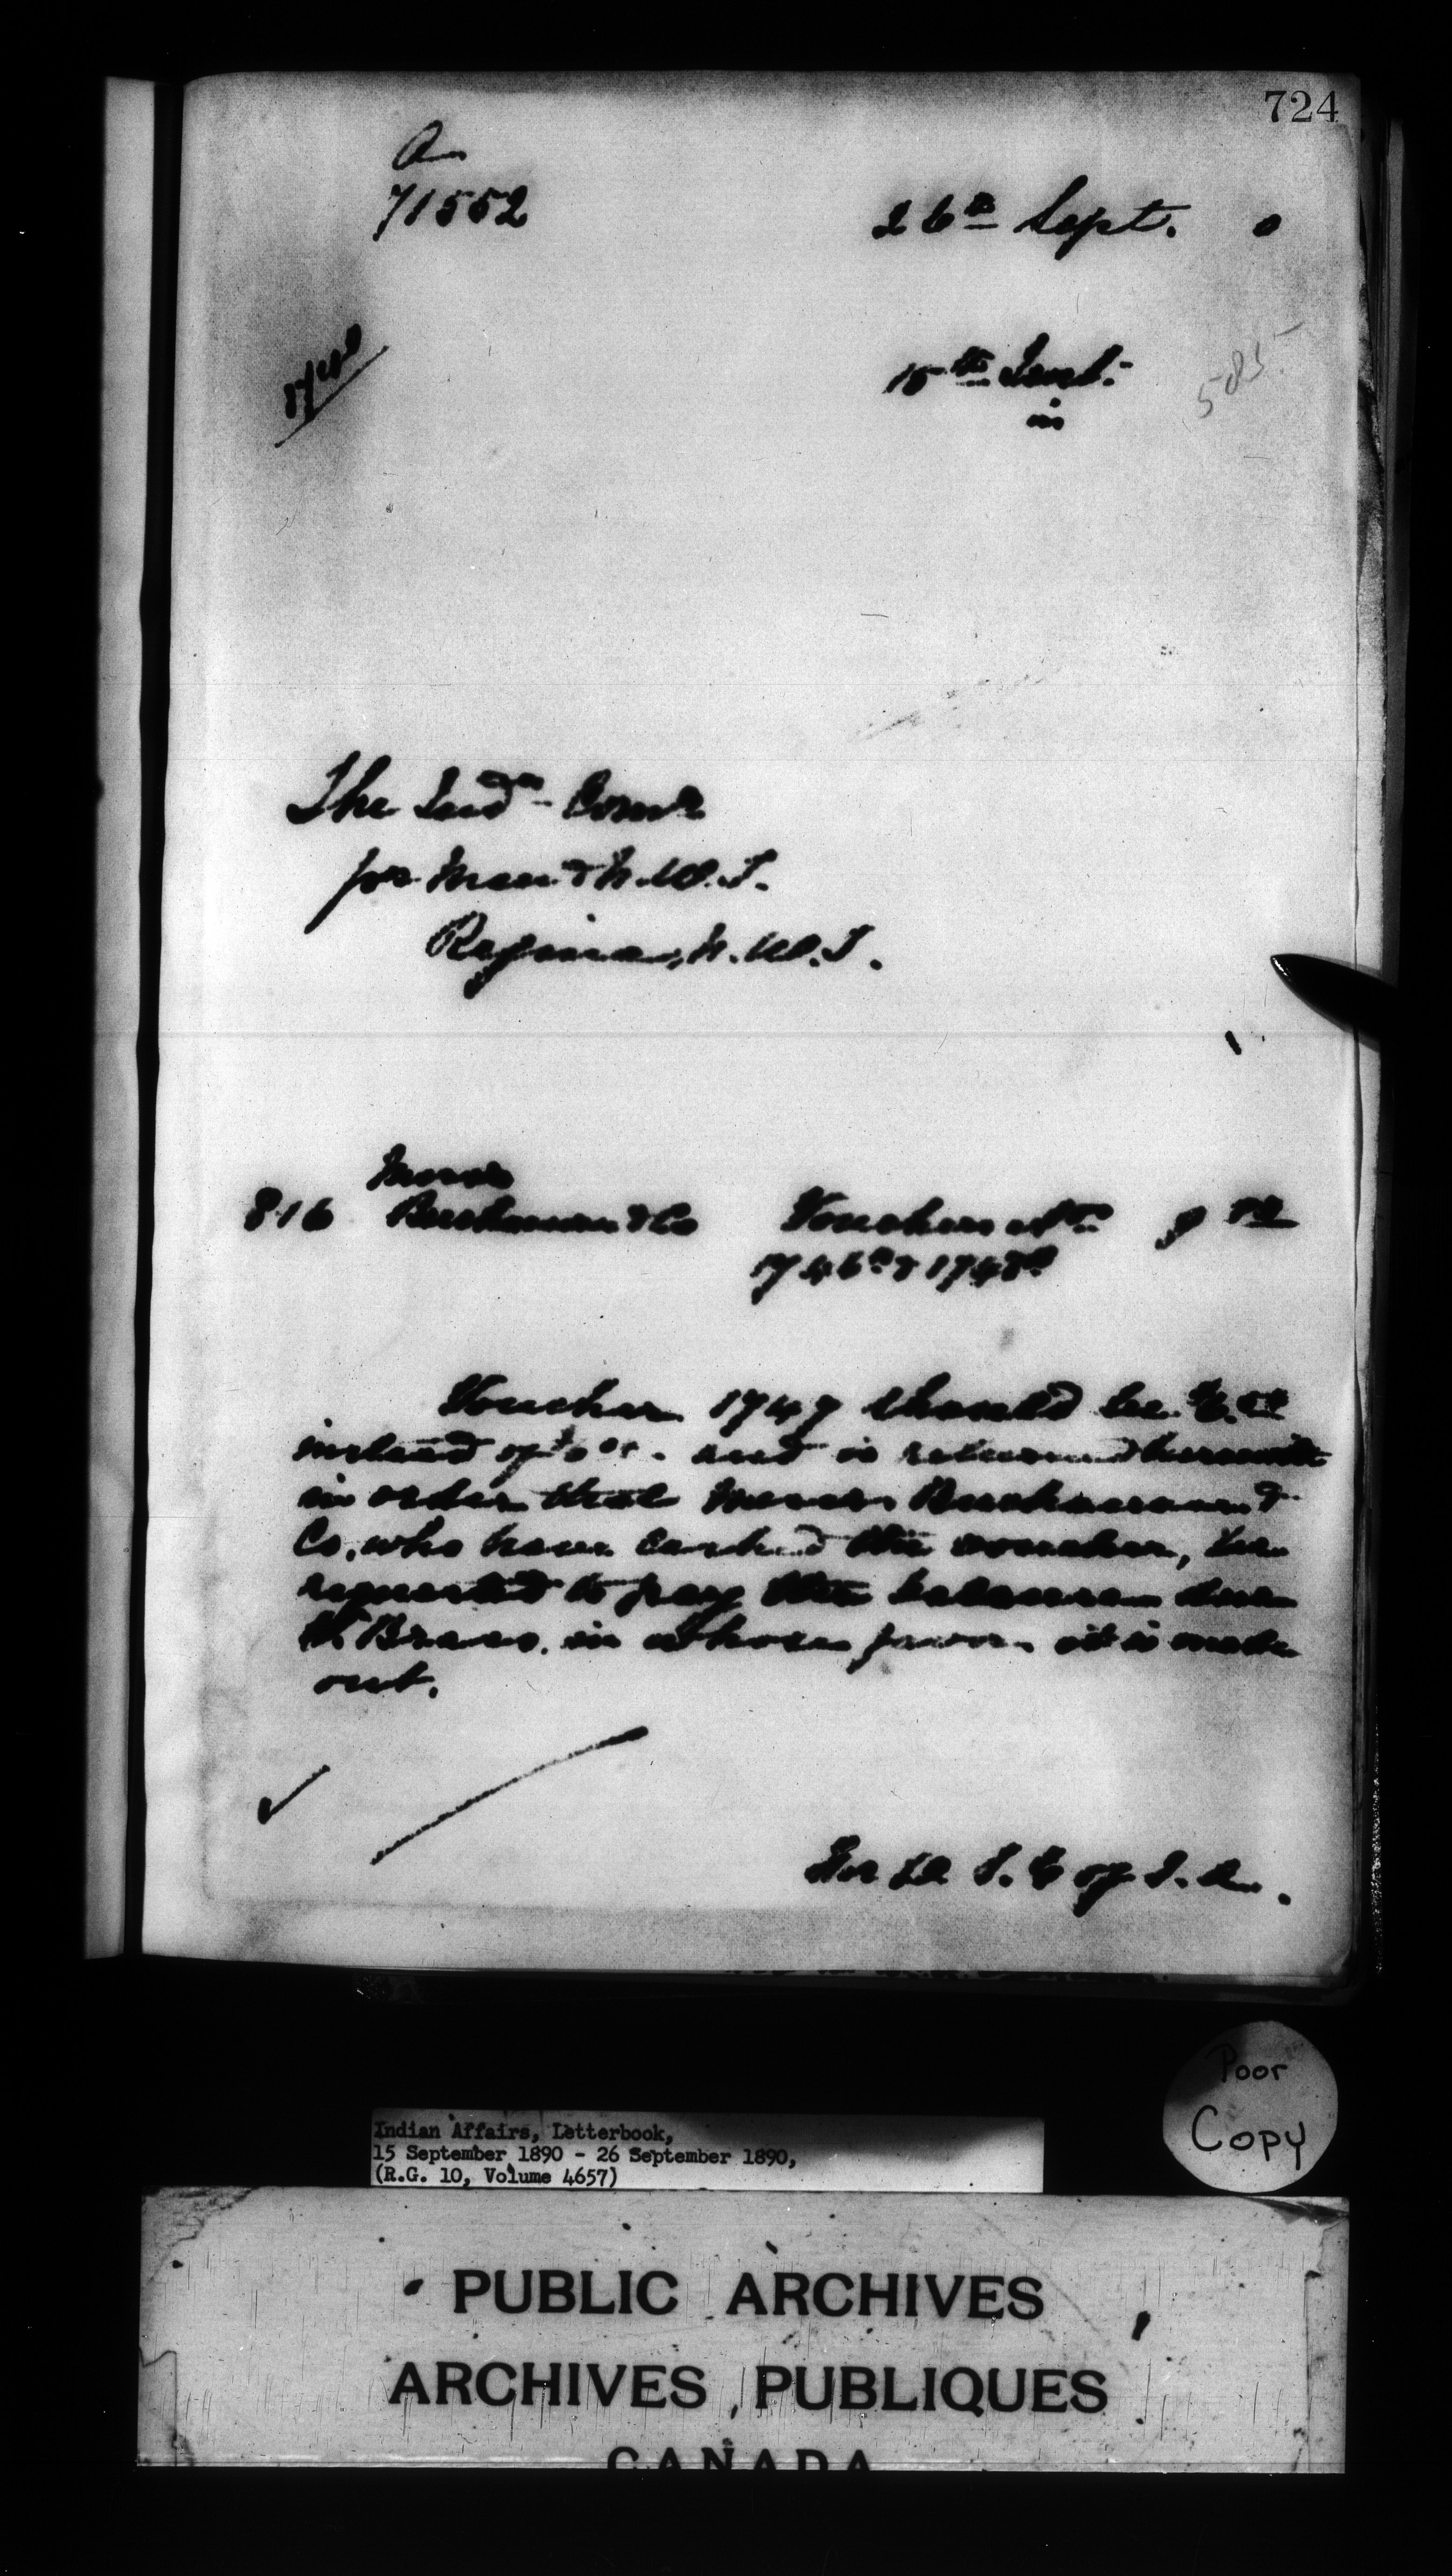 724
A
71552
26th Sept. 0
15th Inst.
in
585
The Indn Comr
for Man & N.W.T.
Regina, N.W.T.
Messrs
816 Buchanan & Co Voucher Nos 9
1746 & 1748
Voucher 1747 should be
instead of and is returned herewith
in order that Messrs Buchanan &
Co. who have cashed the voucher, be
requested to pay the balance due
Brass. in whose favor it is made
out.
D. S. G of I. A.
Poor
Copy
Indian Affairs, Letterbook,
15 September 1890 - 26 September 1890,
(R.G. 10, Volume 4657)
PUBLIC ARCHIVES
ARCHIVES PUBLIQUES
CANADA